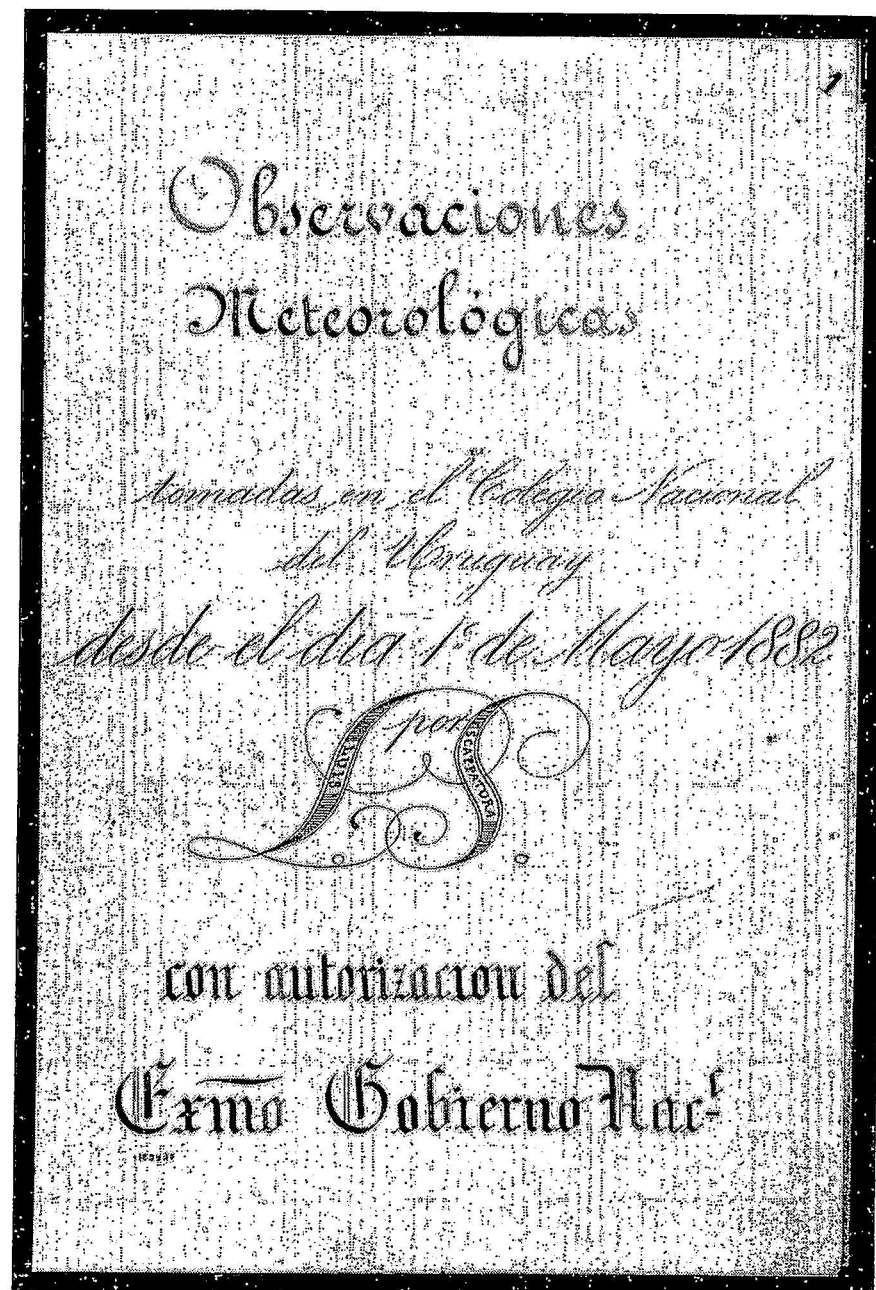 1
Observaciones
Meteorológicas
tomadas en el Colegio Nacional
del Uruguay
desde el dia 1º de Mayo 1882
por
L. S.
SCAPPATURA
con autorizacion del
Exmo Gobierno Nacl